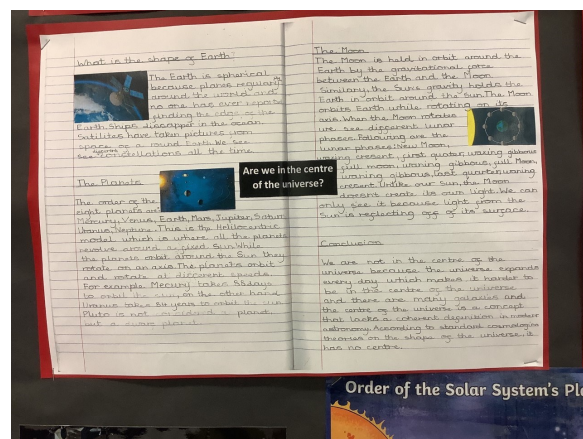 What is the shape of Earth?
The Earth is spherical
because planes regularly
around the world and
no one has ever
finding the edge of the
Earth. Ships dissapper in the ocean.
Satilites have taken pictures from
space of a round Earth. We see
constellations all the time.
The Planets
The order of the
eight planets are
Mercury, Venus, Earth, Mars, Jupitar, Saturn
Uranus, Neptune. This is the Heliocentric
model which is where all the planets
revolve around a fixed Sun. While
the planets orbit around the Sun they
rotate on an axis. The planets orbit
and rotate at different speeds.
For example, Mecury takes 88days
to orbit the sun, on the other hand
Uranus takes 84 years to orbit the sun
Pluto is not considered a planet,
but a dwarf planet.
Are we in the centre
of the universe?
The Moon
The Moon is held in orbit around the
Earth by the gravitational force
between the Earth and the Moon.
Similary, the Sun's gravity holds the
Earth in orbit around the Sun. The Moon
orbits Earth while rotating on its
axis. When the Moon rotates
we see different lunar
phases. Following are the
lunar phases: New Moon,
waxing cresent, first quater, waxing gibbous
full moon, waning gibbous, full Moon,
waning gibbous, last quarter, waning
cresent. Unlike our Sun, the Moon
doesnt create its own light. We can
only see it because light from the
Sun is reflecting off of its surface.
Conclusion
We are not in the centre of the
universe because the universe expands
every day which makes it harder to
be in the centre of the universe
and there are many galaxies and
the centre of the universe is a concept
that lacks a coherent definition in modern
astronomy. According to standard cosmologica
theories on the shape of the universe, it
has no centre.
Order of the Solar System's Pl